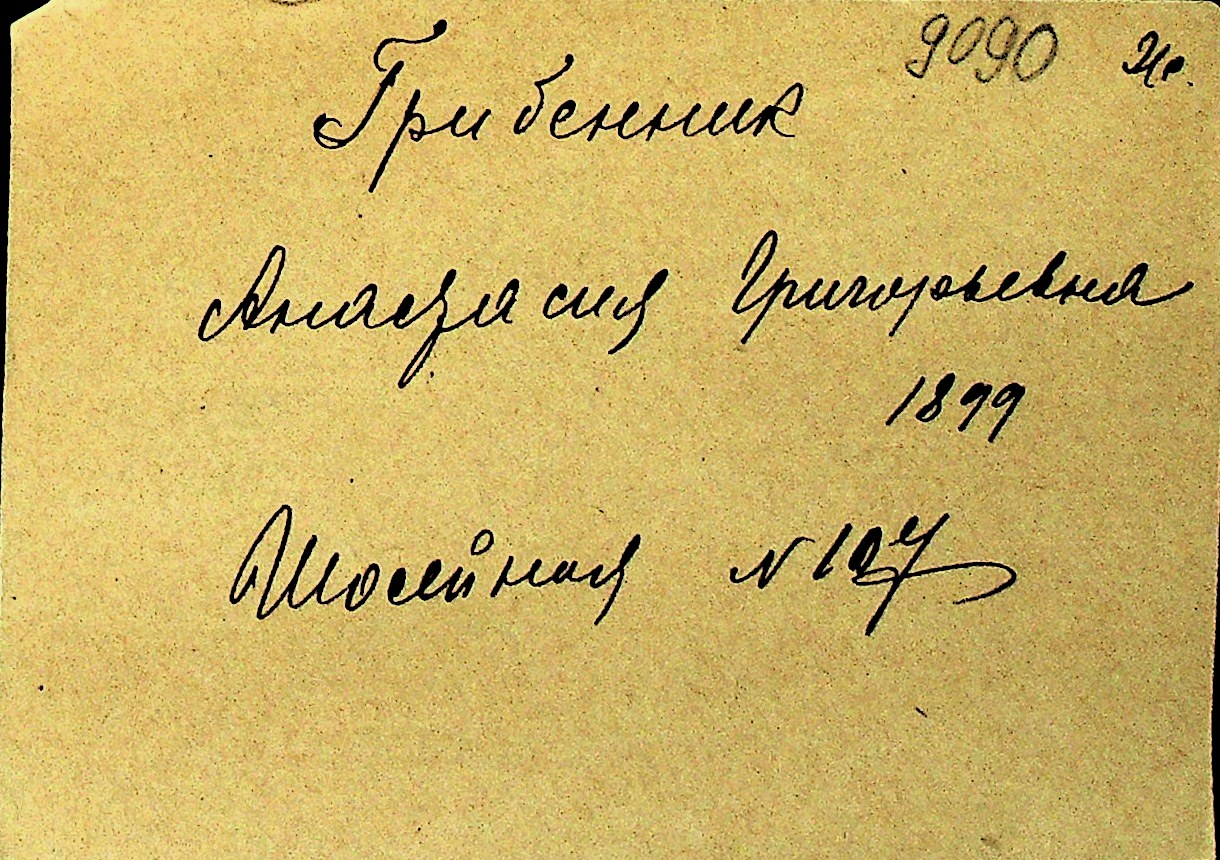 9090
Грибенник
Анастасия Григорьевна
1899
Шосейная N 127